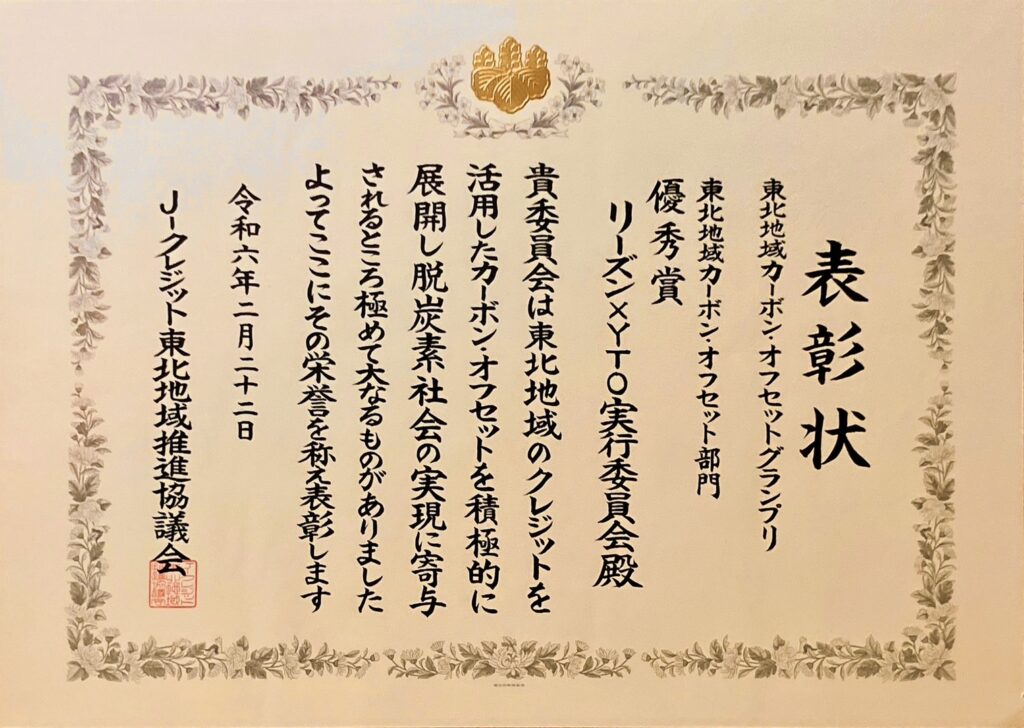 表彰状
東北地域カーボン・オフセットグランプリ
東北地域カーボン・オフセット部門
優秀賞
リーズン×YTO実行委員会殿
貴委員会は東北地域のクレジットを
活用したカーボン・オフセットを積極的に
展開し脱炭素社会の実現に寄与
されるところ極めて大なるものがありました
よってここにその栄誉を称え表彰します
令和六年二月二十二日
J-クレジット東北地域推進協議会